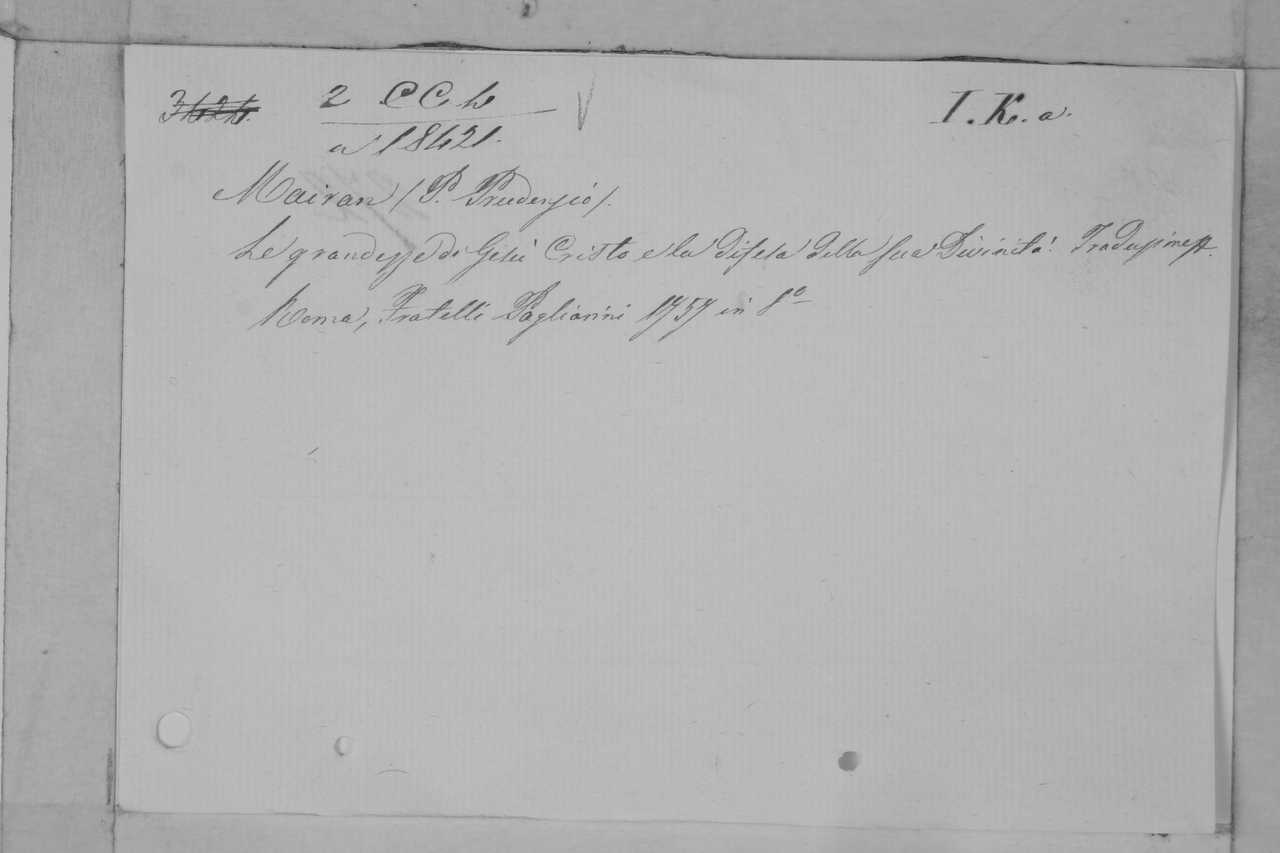 3424. 2 CC 4 I.K.a.
a 18421.
Mairan (P. Prudenzio).
Le grandezze di Gesù Cristo e la difesa della sua Divinità.
Roma, Fratelli Pagliarini 1757 in 8º